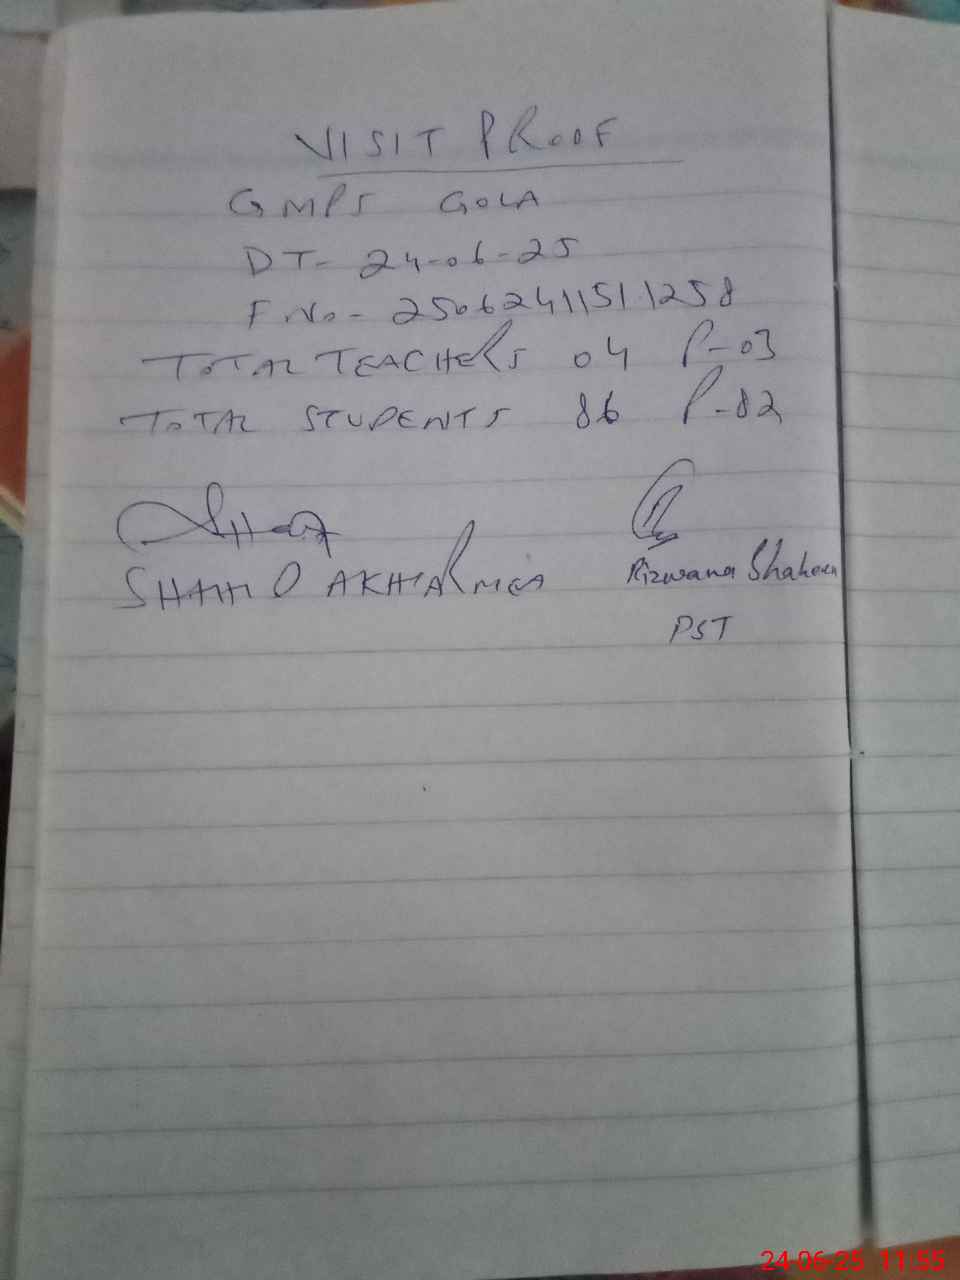 VISIT PROOF
GMPS GOLA
DT- 24-06-25
F.No- 25062411511258
TOTAL TEACHERS 04 P-03
TOTAL STUDENTS 86 P-82
SHAHID AKHTAR MEA Rizwana Shaheen
PST
24-06-25 11:55